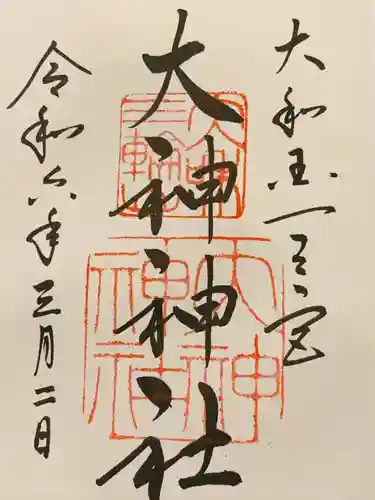 大和国一之宮
大神神社
令和六年三月二日
三輪明神
大神神社